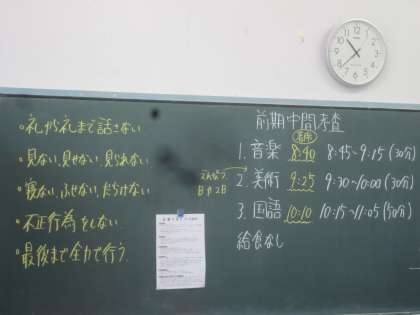 。礼から礼まで話さない
。見ない、見せない、見られない
。寝ない、ふせない、だらけない
。不正行為をしない
。最後まで全力で行う。
前期中間考査
着席
1. 音楽 8:40 8:45~9:15 (30分)
2. 美術 9:25 9:30~10:00 (30分)
3. 国語 10:10 10:15~11:05 (50分)
給食なし